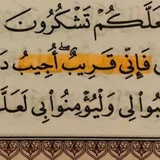 لَّكُمْ تَشْكُرُونَ
فَإِنِّي قَرِيبٌ ۖ أُجِيبُ دَ
بُوا۟ لِي وَلْيُؤْمِنُوا۟ بِي لَعَلَّ